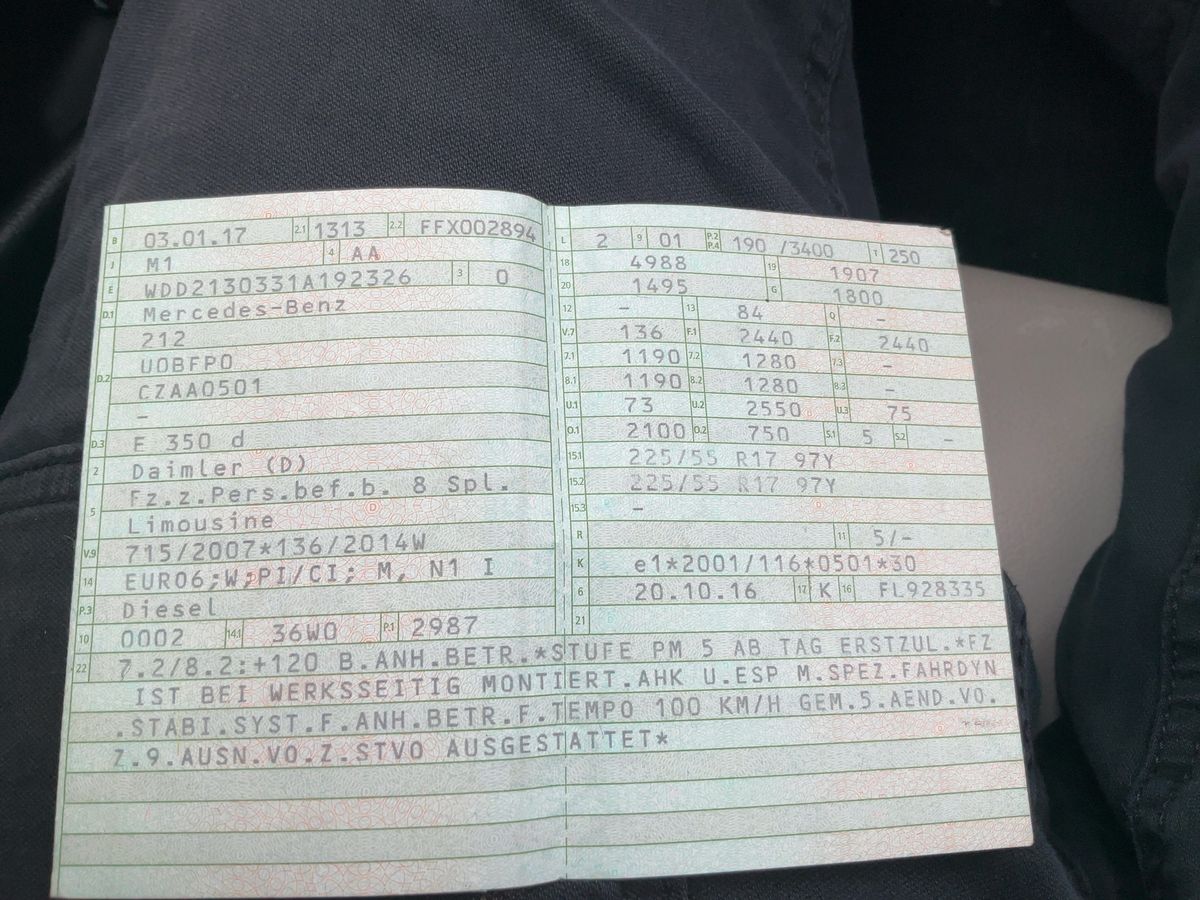 B 03.01.17 2.1 1313 2.2 FFX002894
J M1 4 AA
E WDD2130331A192326 3 0
D.1 Mercedes-Benz
212
D.2 U0BFP0
CZAA0501
–
D.3 E 350 d
2 Daimler (D)
5 Fz.z.Pers.bef.b. 8 Spl.
Limousine
V.9 715/2007*136/2014W
14 EURO6;W;PI/CI; M, N1 I
P.3 Diesel
10 0002 14.1 36W0 P.1 2987
L 2 9 01 P.2 P.4 190 /3400 T 250
18 4988 19 1907
20 1495 G 1800
12 – 13 84 Q –
V.7 136 F.1 2440 F.2 2440
7.1 1190 7.2 1280 7.3 –
8.1 1190 8.2 1280 8.3 –
U.1 73 U.2 2550 U.3 75
O.1 2100 O.2 750 S.1 5 S.2 –
15.1 225/55 R17 97Y
15.2 225/55 R17 97Y
15.3 –
R 11 5/–
K e1*2001/116*0501*30
6 20.10.16 17 K 16 FL928335
21
22 7.2/8.2:+120 B.ANH.BETR.*STUFE PM 5 AB TAG ERSTZUL.*FZ
IST BEI WERKSSEITIG MONTIERT.AHK U.ESP M.SPEZ.FAHRDYN
.STABI.SYST.F.ANH.BETR.F.TEMPO 100 KM/H GEM.5.AEND.VO.
Z.9.AUSN.VO.Z.STVO AUSGESTATTET*